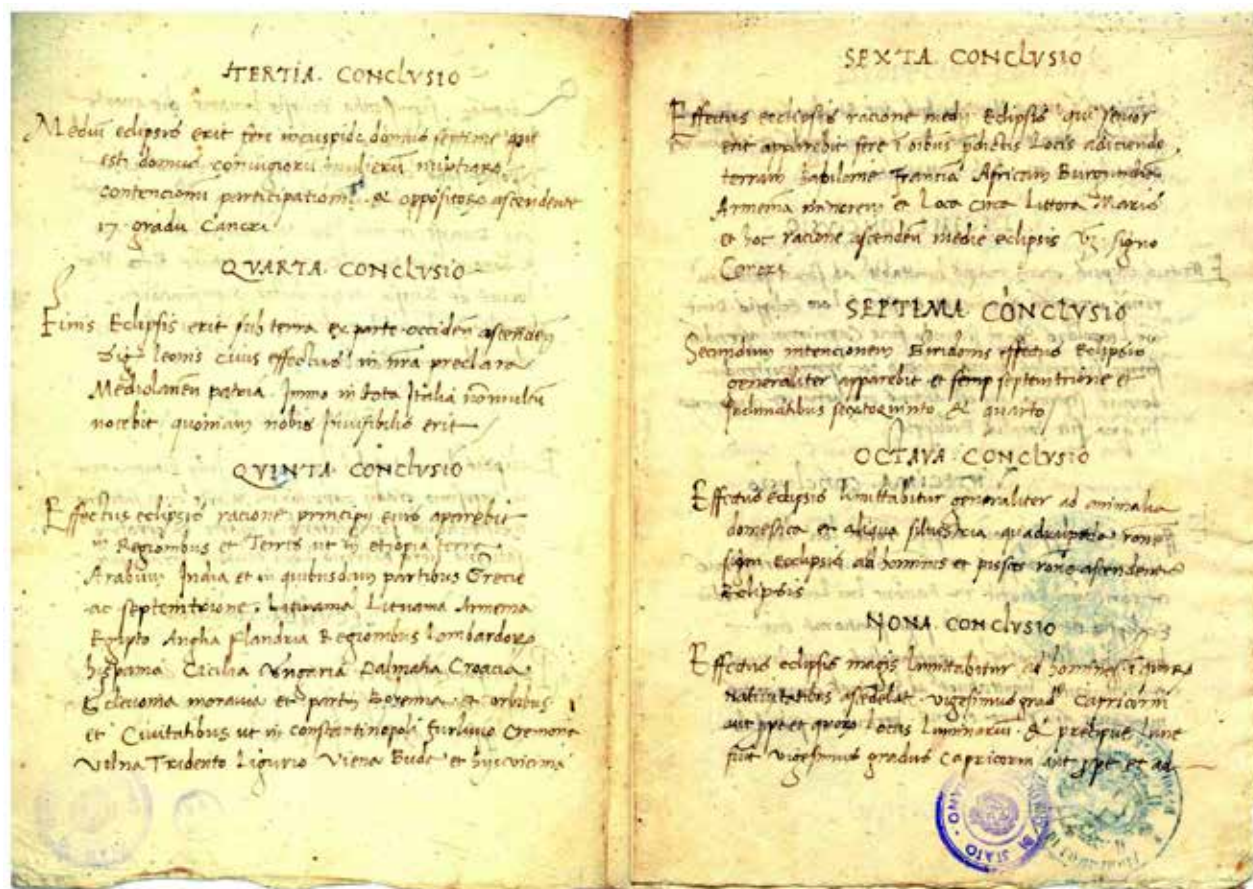 TERTIA. CONCLVSIO
Mediũ eclipsis erit fere in cuspide domus septime que
est domus conuigioru mulierũ nuptiarꝫ
contencionũ participationũ & oppositorꝫ ascendente
17 gradu Cancri
QVARTA. CONCLVSIO
Finis Eclipsis erit sub terra ex parte occideñ ascendeñ
sigº leonis cuius effectus in nr̃a preclara
Mediolaneñ patria. Immo in tota Italia non multũ
nocebit quoniam nobis Inuisibilis erit
QVINTA. CONCLVSIO
Effectus eclipsis racione principij eius aperebit
in Regionibus et Terris ut in etiopia terra
Arabum India et in quibusdam partibus Grecie
ac septemtrione. Litiuania Armenia
Egipto Anglia Flandria Regionibus Lombardorꝫ
hispania Cicilia Vngaria Dalmatia Croacia
Sclauonia morauia et parte Boemia et orbibus
et Ciuitatibus ut in Constantinopoli furliuio Cremona
Tridento Ligurio Viena Bude et hijs vicinia
SEXTA CONCLVSIO
Effectus ecclipsis racione medij Eclipsis qui senior
erit apparebit fere ĩ oĩbus p̃dictis Locis adiciendo
terram babilonie Francia Africam Burgundiẽ
Armenia minorem et Loca circa Littora Maris
et hoc racione ascendeñ medie eclipsis Vꝫ Signo
Cancri
SEPTIMA CONCLVSIO
Secundum intencionem effectus Eclipsis
generaliter apparebit et semp septemtrione et
sextoquinto & quarto
OCTAVA. CONCLVSIO
Effectus eclipsis limittabitur generaliter ad animalia
domestica et aliqua siluestria quadrupeda rõne
signi Ecclipsis ad homines et pisces rõne ascendentis
Eclipsis
NONA. CONCLVSIO
Effectus eclipsis magis limitabitur ad homines ĩ quorꝫ
Natiuitatibus vigesimus gradº Capricorni
aut ꝓpe et quorꝫ Locus Luminariũ & precipue Lune
fuit vigesimus gradus Capricorni aut ꝓpe et ad
STATO